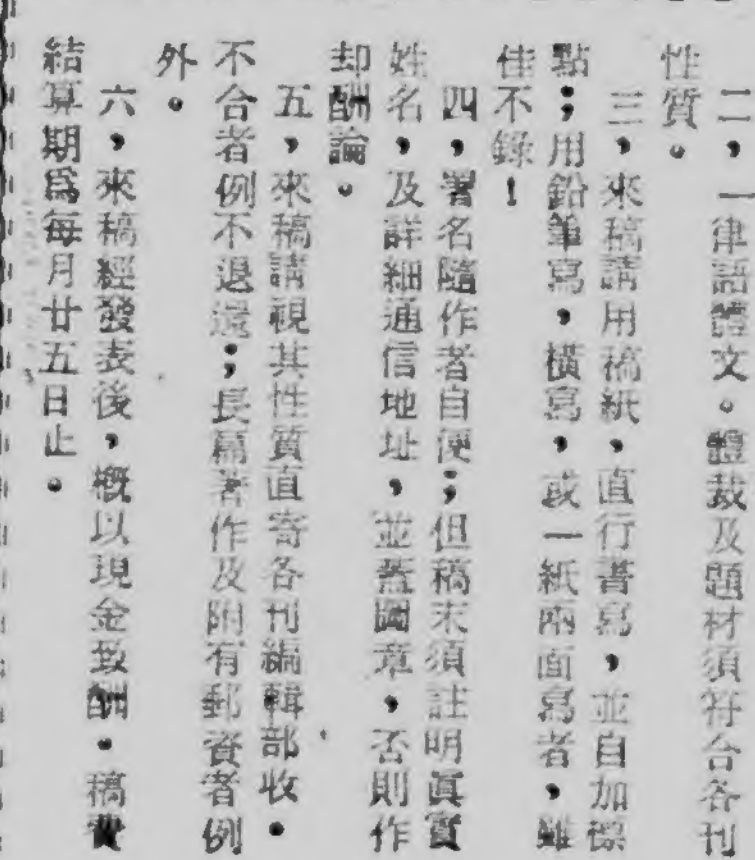 二，一律語體文。體裁及題材須符合各刊
性質。
三，來稿請用稿紙，直行書寫，並自加標
點；用鉛筆寫，橫寫，或一紙兩面寫者，雖
佳不錄！
四，署名隨作者自便；但稿末須註明眞實
姓名，及詳細通信地址，並蓋圖章，否則作
却酬論。
五，來稿請視其性質直寄各刊編輯部收。
不合者例不退還；長篇著作及附有郵資者例
外。
六，來稿經發表後，概以現金致酬。稿費
結算期爲每月廿五日止。